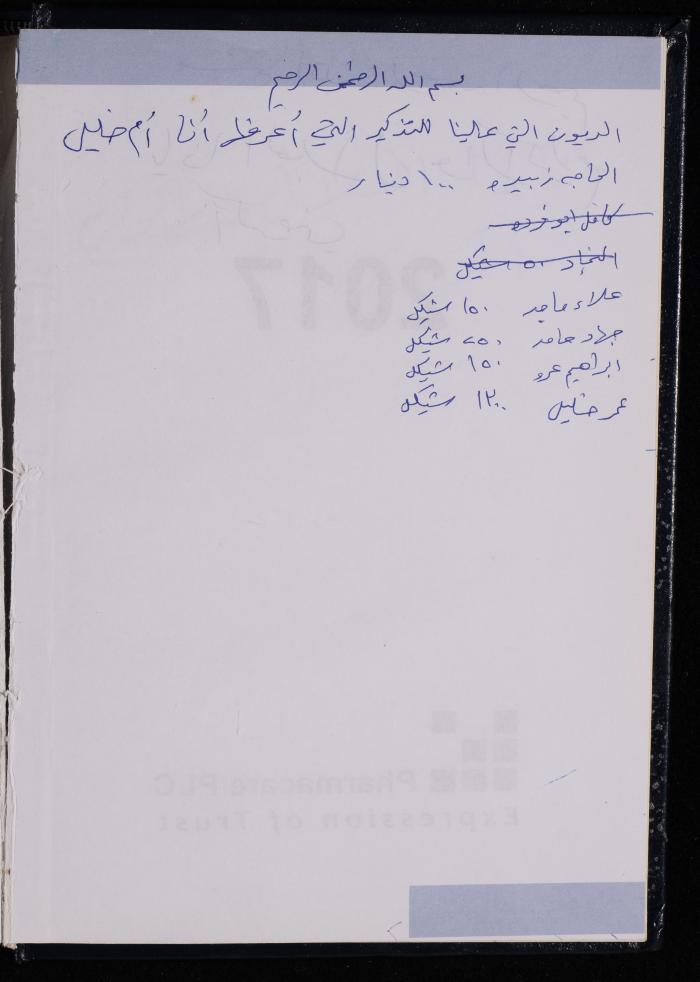 بسم الله الرحمن الرحيم
الديون التي علينا للتذكير التي أعرفها أنا أم خليل
الحاجه زبيده ١٠٠ دينار
كامل ابو فرده
النجار ٥٠ شيكل
علاء ماجد ١٥٠ شيكل
جهاد حامد ٢٥٠ شيكل
ابراهيم عمرو ١٥٠ شيكل
عمر خليل ١٢٠٠ شيكل
2017
Pharmacare PLC
Expression of Trust